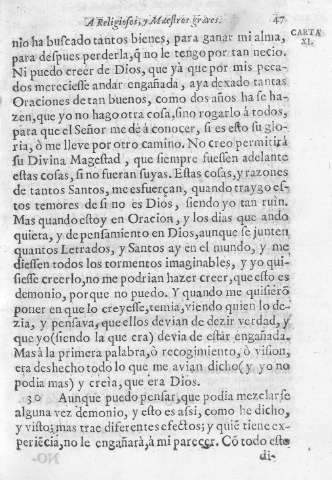 A Religiosos, y Maestros graves. 47
CARTA
XI.
nio ha buscado tantos bienes, para ganar mi alma,
para despues perderla, q̃ no le tengo por tan necio.
Ni puedo creer de Dios, que yà que por mis peca-
dos mereciesse andar engañada, aya dexado tantas
Oraciones de tan buenos, como dos años ha se ha-
zen, que yo no hago otra cosa, sino rogarlo à todos,
para que el Señor me dè à conocer, si es esto su glo-
ria, ò me lleve por otro camino. No creo permitirà
su Divina Magestad, que siempre fuessen adelante
estas cosas, si no fueran suyas. Estas cosas, y razones
de tantos Santos, me esfuerçan, quando traygo es-
tos temores de si no es Dios, siendo yo tan ruin.
Mas quando estoy en Oracion, y los dias que ando
quieta, y de pensamiento en Dios, aunque se junten
quantos Letrados, y Santos ay en el mundo, y me
diessen todos los tormentos imaginables, y yo qui-
siesse creerlo, no me podrian hazer creer, que esto es
demonio, porque no puedo. Y quando me quisierõ
poner en que lo creyesse, temia, viendo quien lo de-
zia, y pensava, que ellos devian de dezir verdad, y
que yo (siendo la que era) devia de estàr engañada.
Mas à la primera palabra, ò recogimiento, ò vision,
era deshecho todo lo que me avian dicho (y yo no
podia mas) y creìa, que era Dios.
30 Aunque puedo pensar, que podia mezclarse
alguna vez demonio, y esto es assi, como he dicho,
y visto; mas trae diferentes efectos; y quiẽ tiene ex-
periẽcia, no le engañarà, à mi parecer. Cõ todo esto
di-